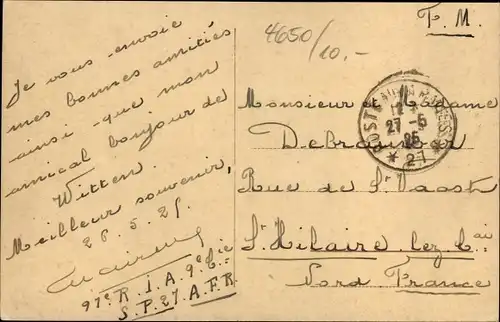 4650/10.-
F. M.
Je vous envoie
mes bonnes amitiés
ainsi que mon
amical bonjour de
Witten.
Meilleur souvenir,
26.5.25.
97e R.I.A. 9e Cie
S.P. 27 A.F.R.
POSTE
27-5
25
* 27 *
Monsieur et Madame
Rue de St Vaast
St Hilaire lez Cai
Nord France